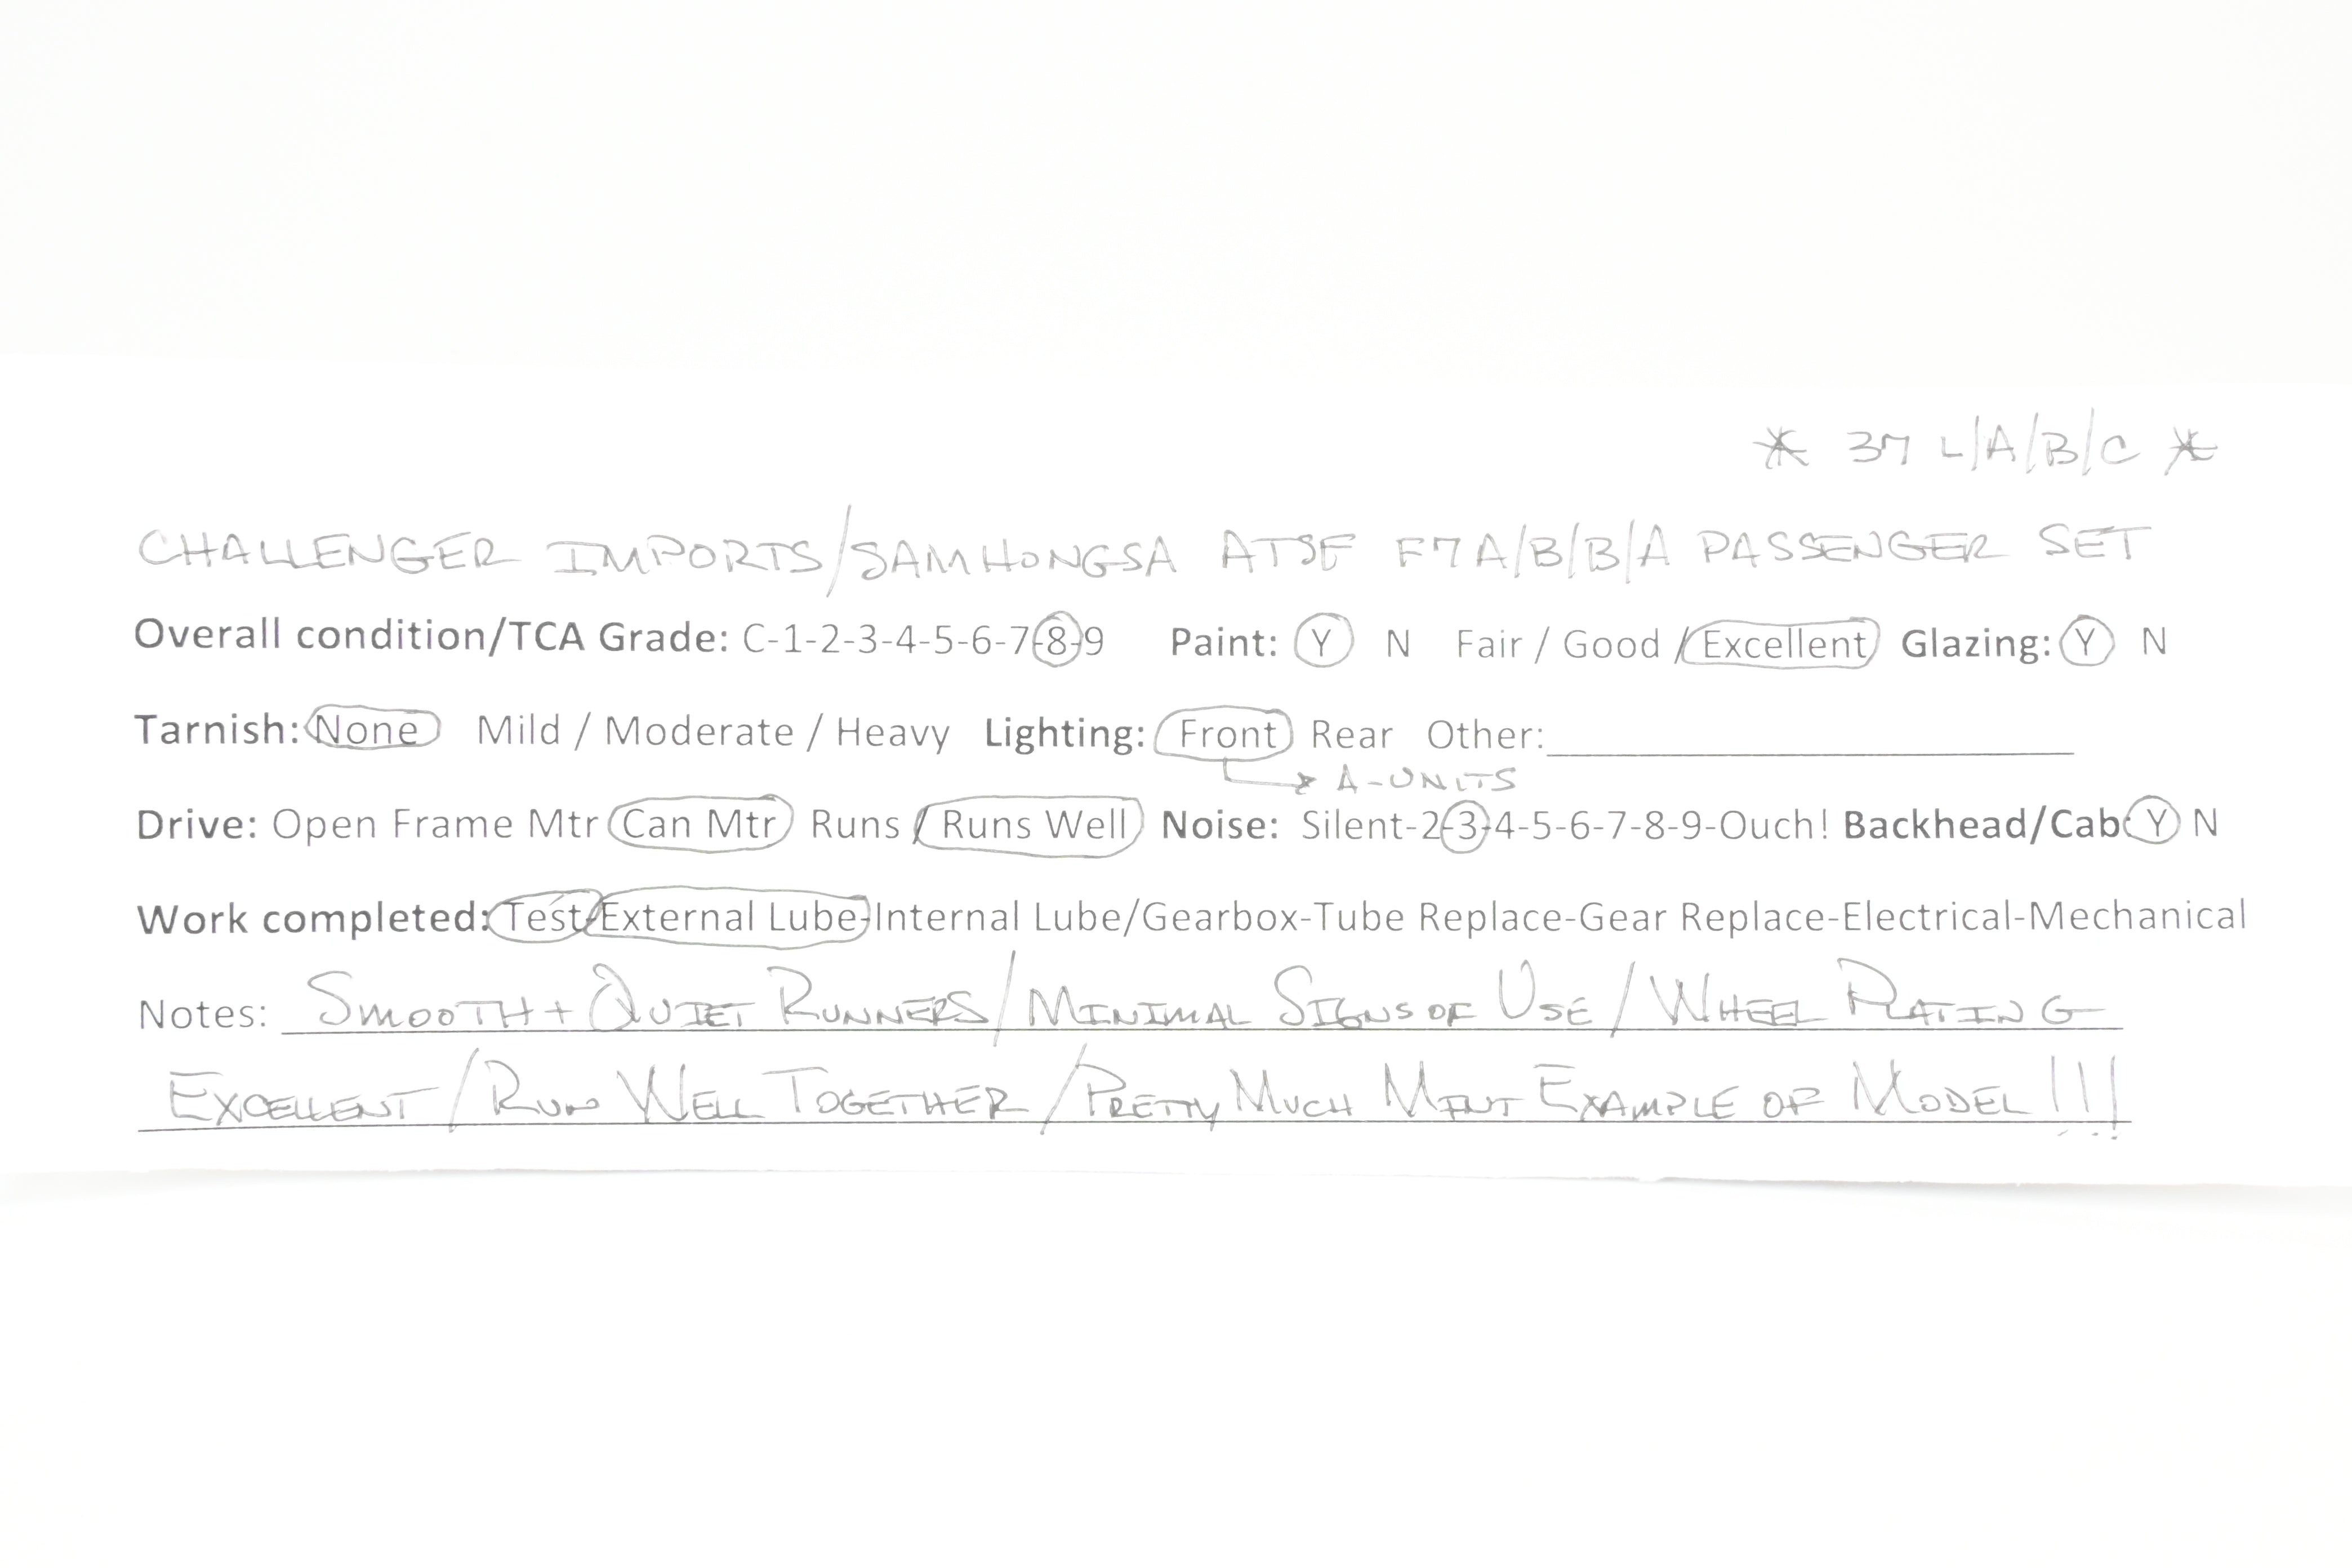 * 37 L/A/B/C *
CHALLENGER IMPORTS/SAMHONGSA ATSF F7 A/B/B/A PASSENGER SET
Overall condition/TCA Grade: C-1-2-3-4-5-6-7-8-9 Paint: Y N Fair / Good / Excellent Glazing: Y N
Tarnish: None Mild / Moderate / Heavy Lighting: Front Rear Other:
A-UNITS
Drive: Open Frame Mtr Can Mtr Runs / Runs Well Noise: Silent-2-3-4-5-6-7-8-9-Ouch! Backhead/Cab: Y N
Work completed: Test-External Lube-Internal Lube/Gearbox-Tube Replace-Gear Replace-Electrical-Mechanical
Notes: SMOOTH + QUIET RUNNERS/MINIMAL SIGNS OF USE/WHEEL PLATING
EXCELLENT/RUN WELL TOGETHER/PRETTY MUCH MINT EXAMPLE OF MODEL!!!